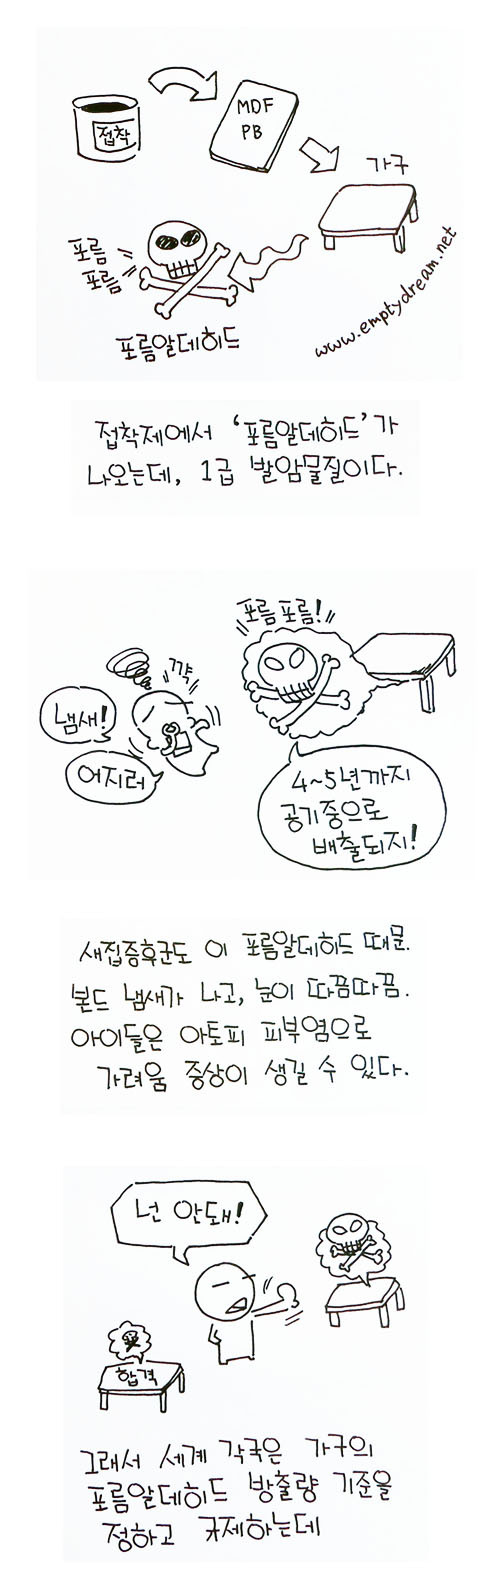 접착
MDF
PB
가구
포름
포름
포름알데히드
www.emptydream.net
접착제에서 '포름알데히드'가
나오는데, 1급 발암물질이다.
포름포름!
꺅
냄새!
어지러
4~5년까지
공기중으로
배출되지!
새집증후군도 이 포름알데히드 때문.
본드 냄새가 나고, 눈이 따끔따끔.
아이들은 아토피 피부염으로
가려움 증상이 생길 수 있다.
넌 안돼!
합격
그래서 세계 각국은 가구의
포름알데히드 방출량 기준을
정하고 규제하는데